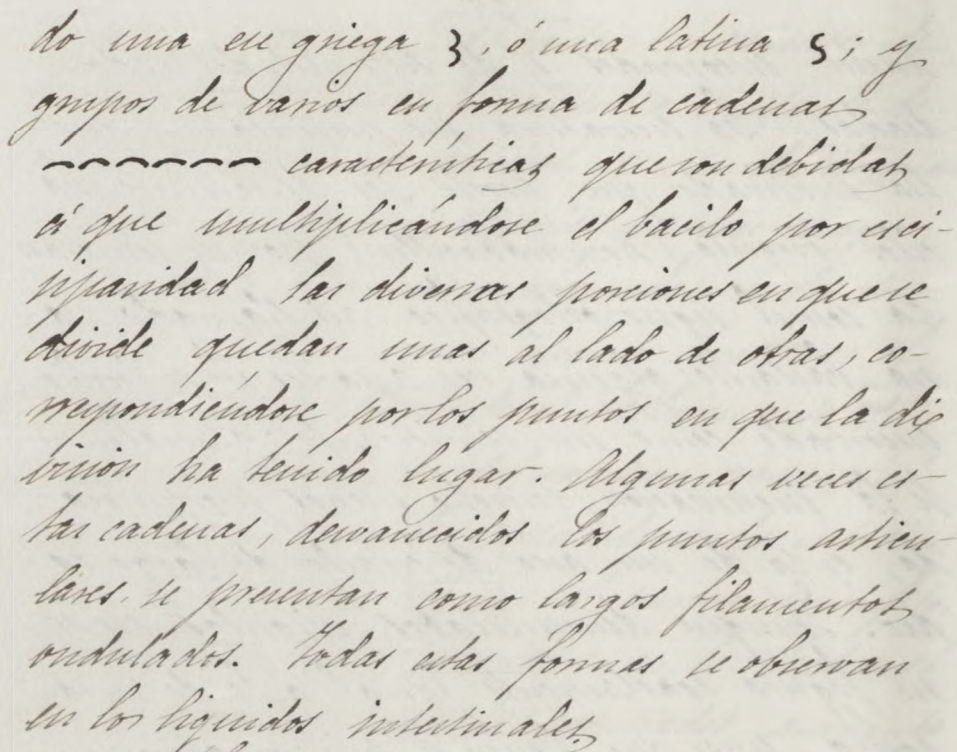 do una ese griega 3, ó una latina S; y
grupos de varios en forma de cadenas
~~~~~~ características que son debidas
á que multiplicándose el bacilo por esci-
siparidad las diversas porciones en que se
divide quedan unas al lado de otras, co-
rrespondiéndose por los puntos en que la di-
visión ha tenido lugar. Algunas veces es-
tas cadenas, desvanecidos los puntos articu-
lares, se presentan como largos filamentos
ondulados. Todas estas formas se observan
en los liquidos intestinales